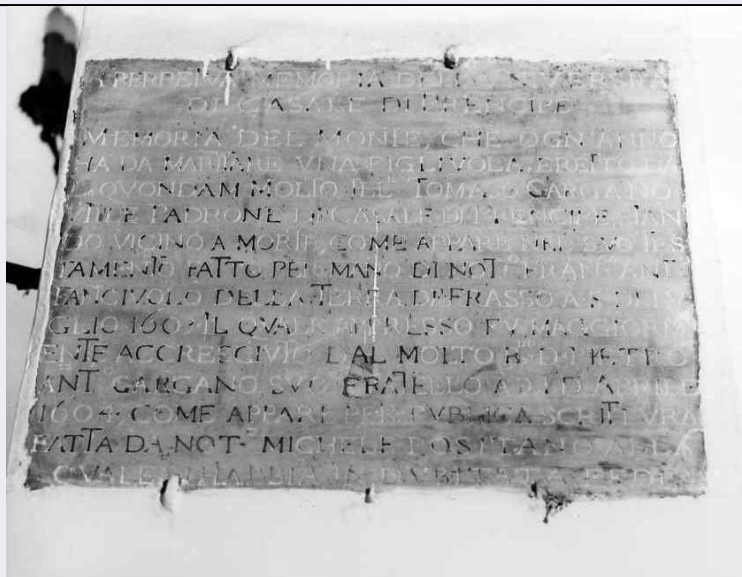 A PERPETVA MEMORIA DELL' VNIVERSITÀ
DI CASALE DI PRENCIPE
MEMORIA DEL MONTE, CHE OGN'ANNO
HA DA MARITARE VNA FIGLIVOLA, ERETTO DA
QVONDAM MOLTO ILL. TOMASO GARGANO
VTILE PADRONE DI CASALE DI PRENCIPE STAN
DO VICINO A MORTE, COME APPARE NEL SVO TES
TAMENTO FATTO PER MANO DI NOT. FRAN. ANT.
FANCIVOLO DELLA TERRA DE FRASSO A DE
GLIO IL QVALE APPRESSO FV MAGGIORM
ENTE ACCRESCIVTO DAL MOLTO R. D. PIETRO
ANT. GARGANO SVO FRATELLO A D APRILE
COME APPARE PER PVBLICA SCRITTVRA
FATTA DA NOT. MICHELE POSITANO ALLA
QVALE SI HABBIA INDVBITATA FEDE